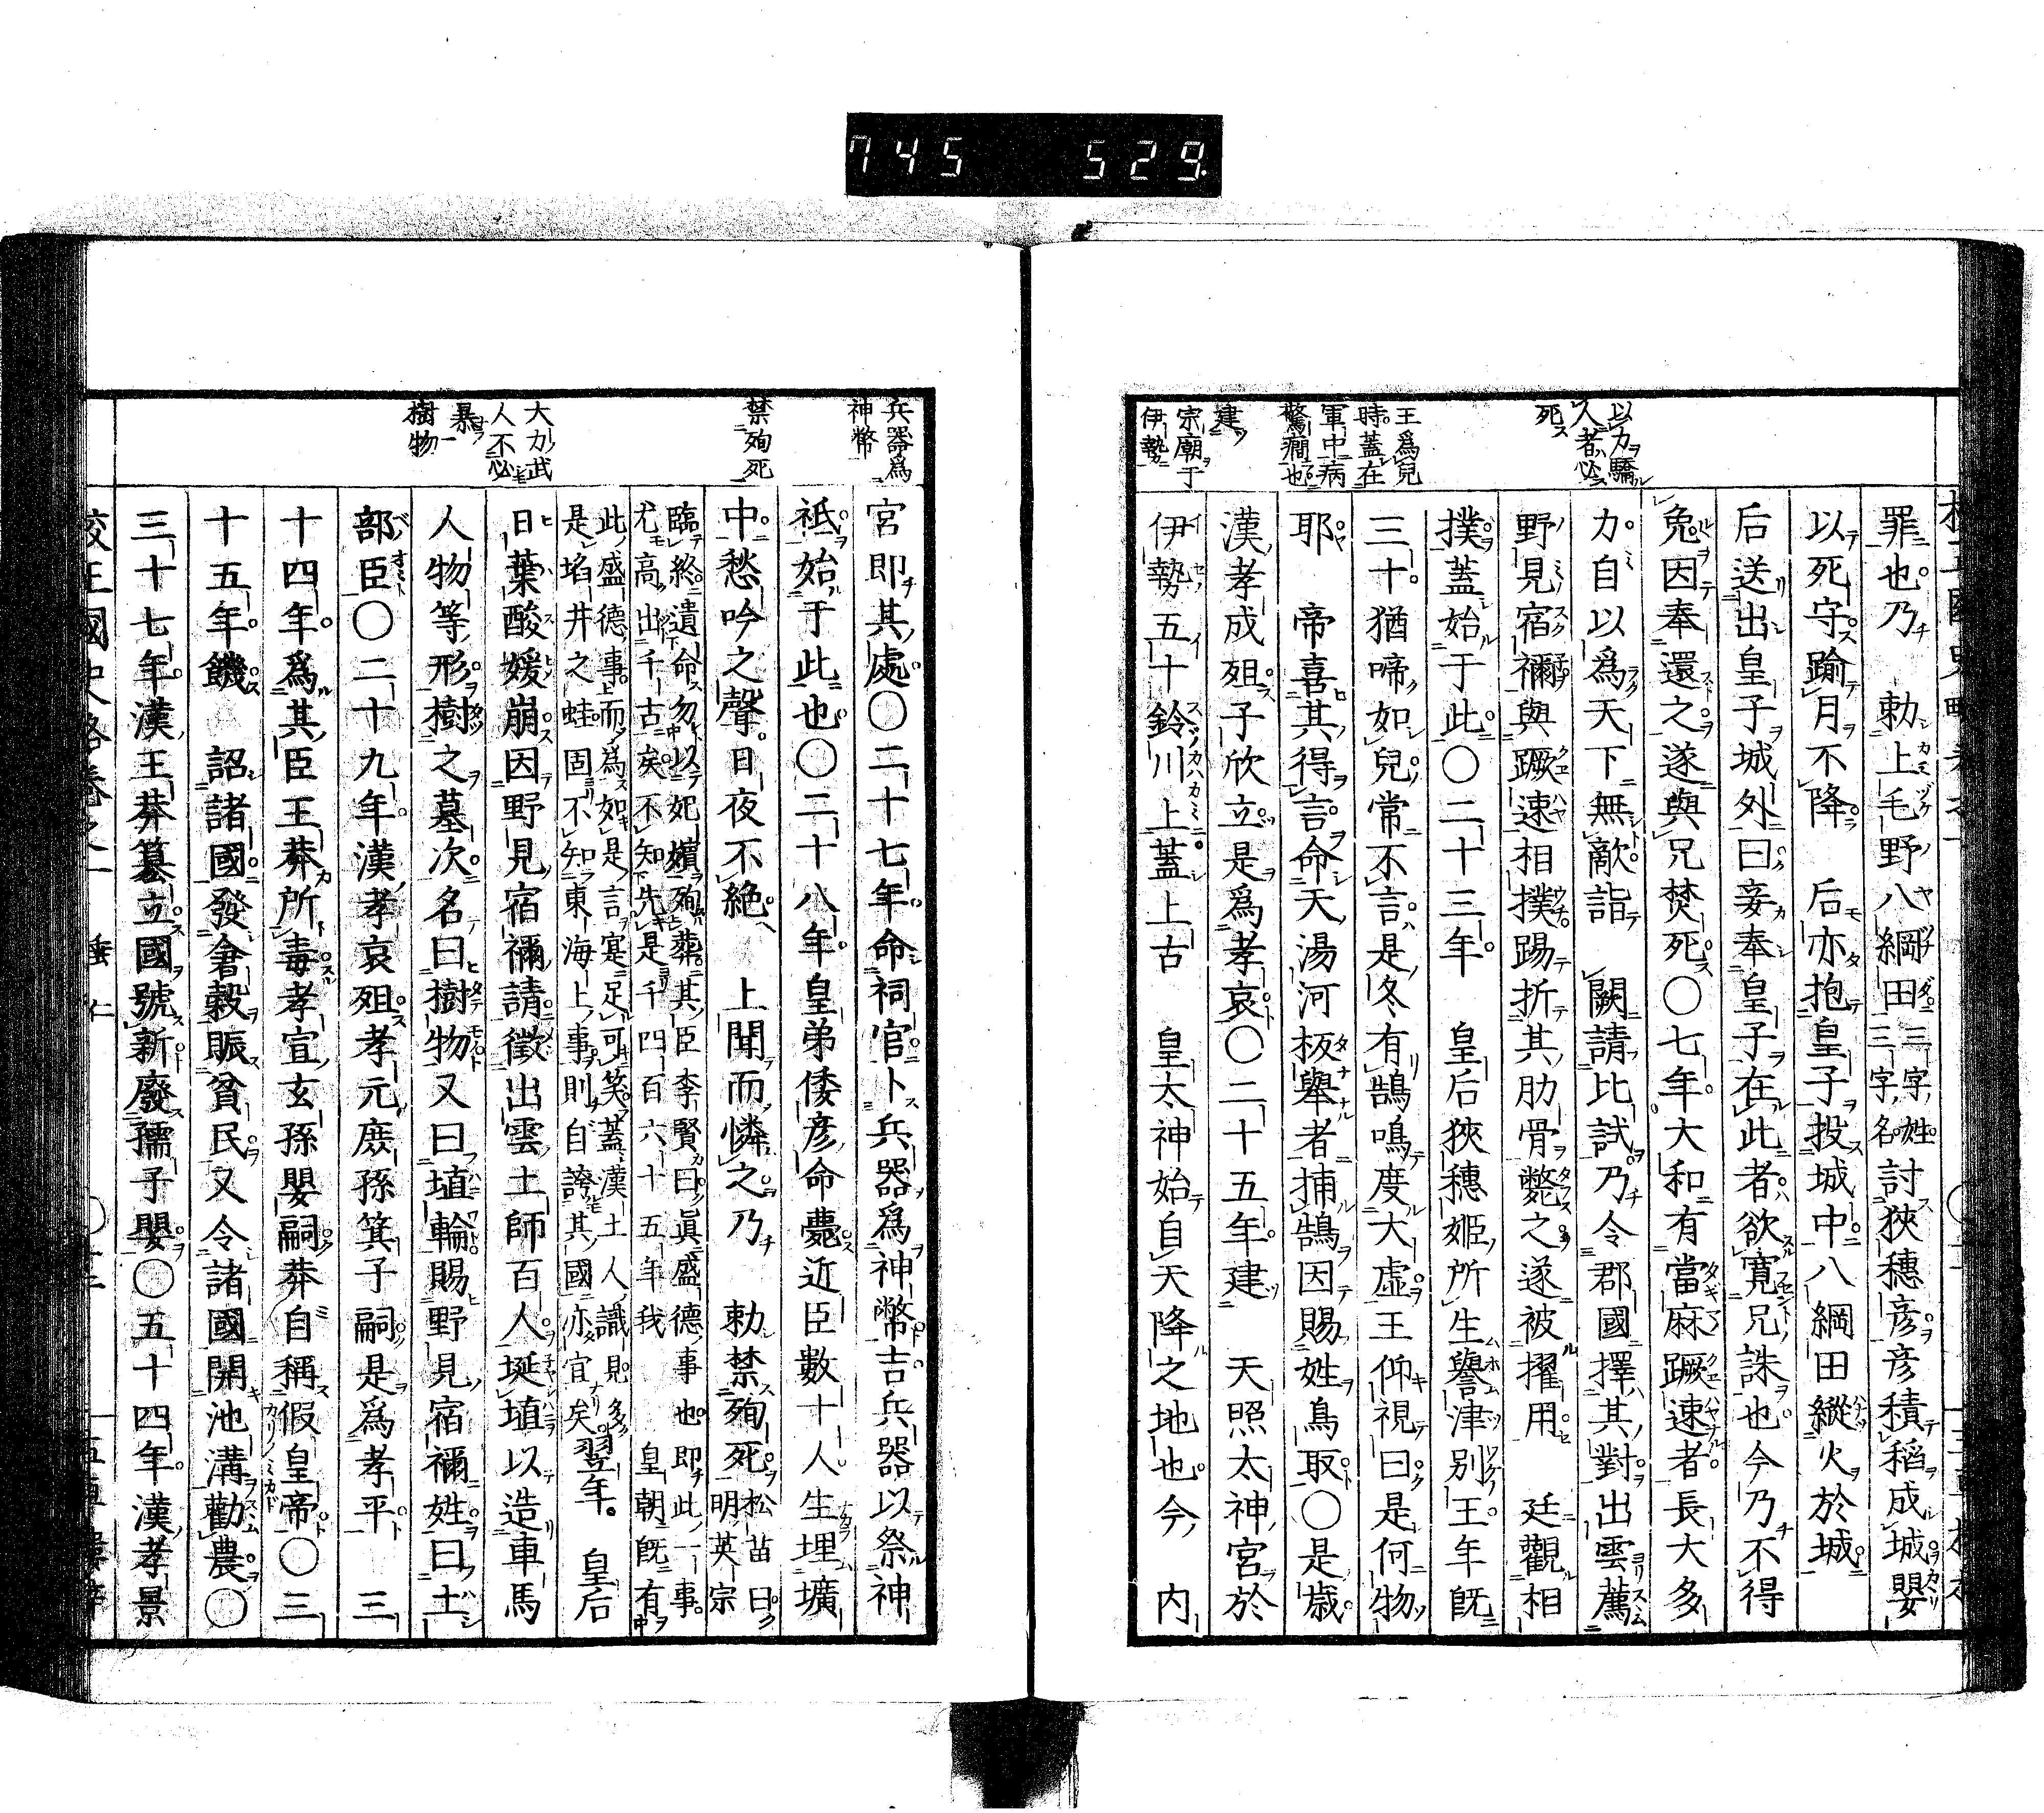 745 529
以力驕
人者必
死
王爲兒
時蓋在
軍中病
驚癇也
建
宗廟于
伊勢
罪也乃 勅上毛野八綱田三字姓三字名討狹穗彦彦積稻成城嬰
以死守踰月不降 后亦抱皇子投城中八綱田縱火於城
后送出皇子城外曰妾奉皇子在此者欲寛兄誅也今乃不得
免因奉還之遂與兄焚死〇七年大和有當麻蹶速者長大多
力自以爲天下無敵詣 闕請比試乃令郡國擇其對出雲薦
野見宿禰與蹶速相撲踢折其肋骨斃之遂被擢用 廷觀相
撲蓋始于此〇二十三年 皇后狹穗姫所生譽津別王年旣
三十猶啼如兒常不言是冬有鵠鳴度大虚王仰視曰是何物
耶 帝喜其得言命天湯河板擧者捕鵠因賜姓鳥取〇是歳
漢孝成殂子欣立是爲孝哀〇二十五年建 天照太神宮於
伊勢五十鈴川上蓋上古 皇太神始自天降之地也今 内
兵器爲
神幣
禁殉死
大力武
人不必
暴
樹物
宮即其處〇二十七年命祠官卜兵器爲神幣吉兵器以祭神
祇始于此也〇二十八年皇弟倭彦命薨近臣數十人生埋壙
中愁吟之聲日夜不絶 上聞而憐之乃 勅禁殉死松苗曰明英宗
臨終遺命勿以妃嬪殉葬其臣李賢曰眞盛德事也即此一事
尤高出千古矣不知先是千四百六十五年我 皇朝旣有
此盛德事而爲如是言寔足可笑蓋漢土人識見多
是埳井之蛙固不知東海上事則自誇其國亦宜矣翌年 皇后
日葉酸媛崩因野見宿禰請徵出雲土師百人埏埴以造車馬
人物等形樹之墓次名曰樹物又曰埴輪賜野見宿禰姓曰土
部臣〇二十九年漢孝哀殂孝元庶孫箕子嗣是爲孝平 三
十四年爲其臣王莽所毒孝宣玄孫嬰嗣莽自稱假皇帝〇三
十五年饑 詔諸國發倉穀賑貧民又令諸國開池溝勸農〇
三十七年漢王莽簒立國號新廢孺子嬰〇五十四年漢孝景